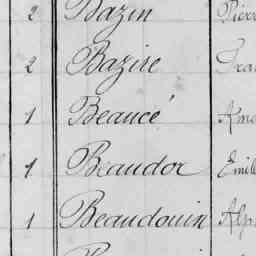 2 Bazin Pierr
2 Bazire Fra
1 Beaucé Amé
1 Beaudor Emil
1 Beaudouin Alp